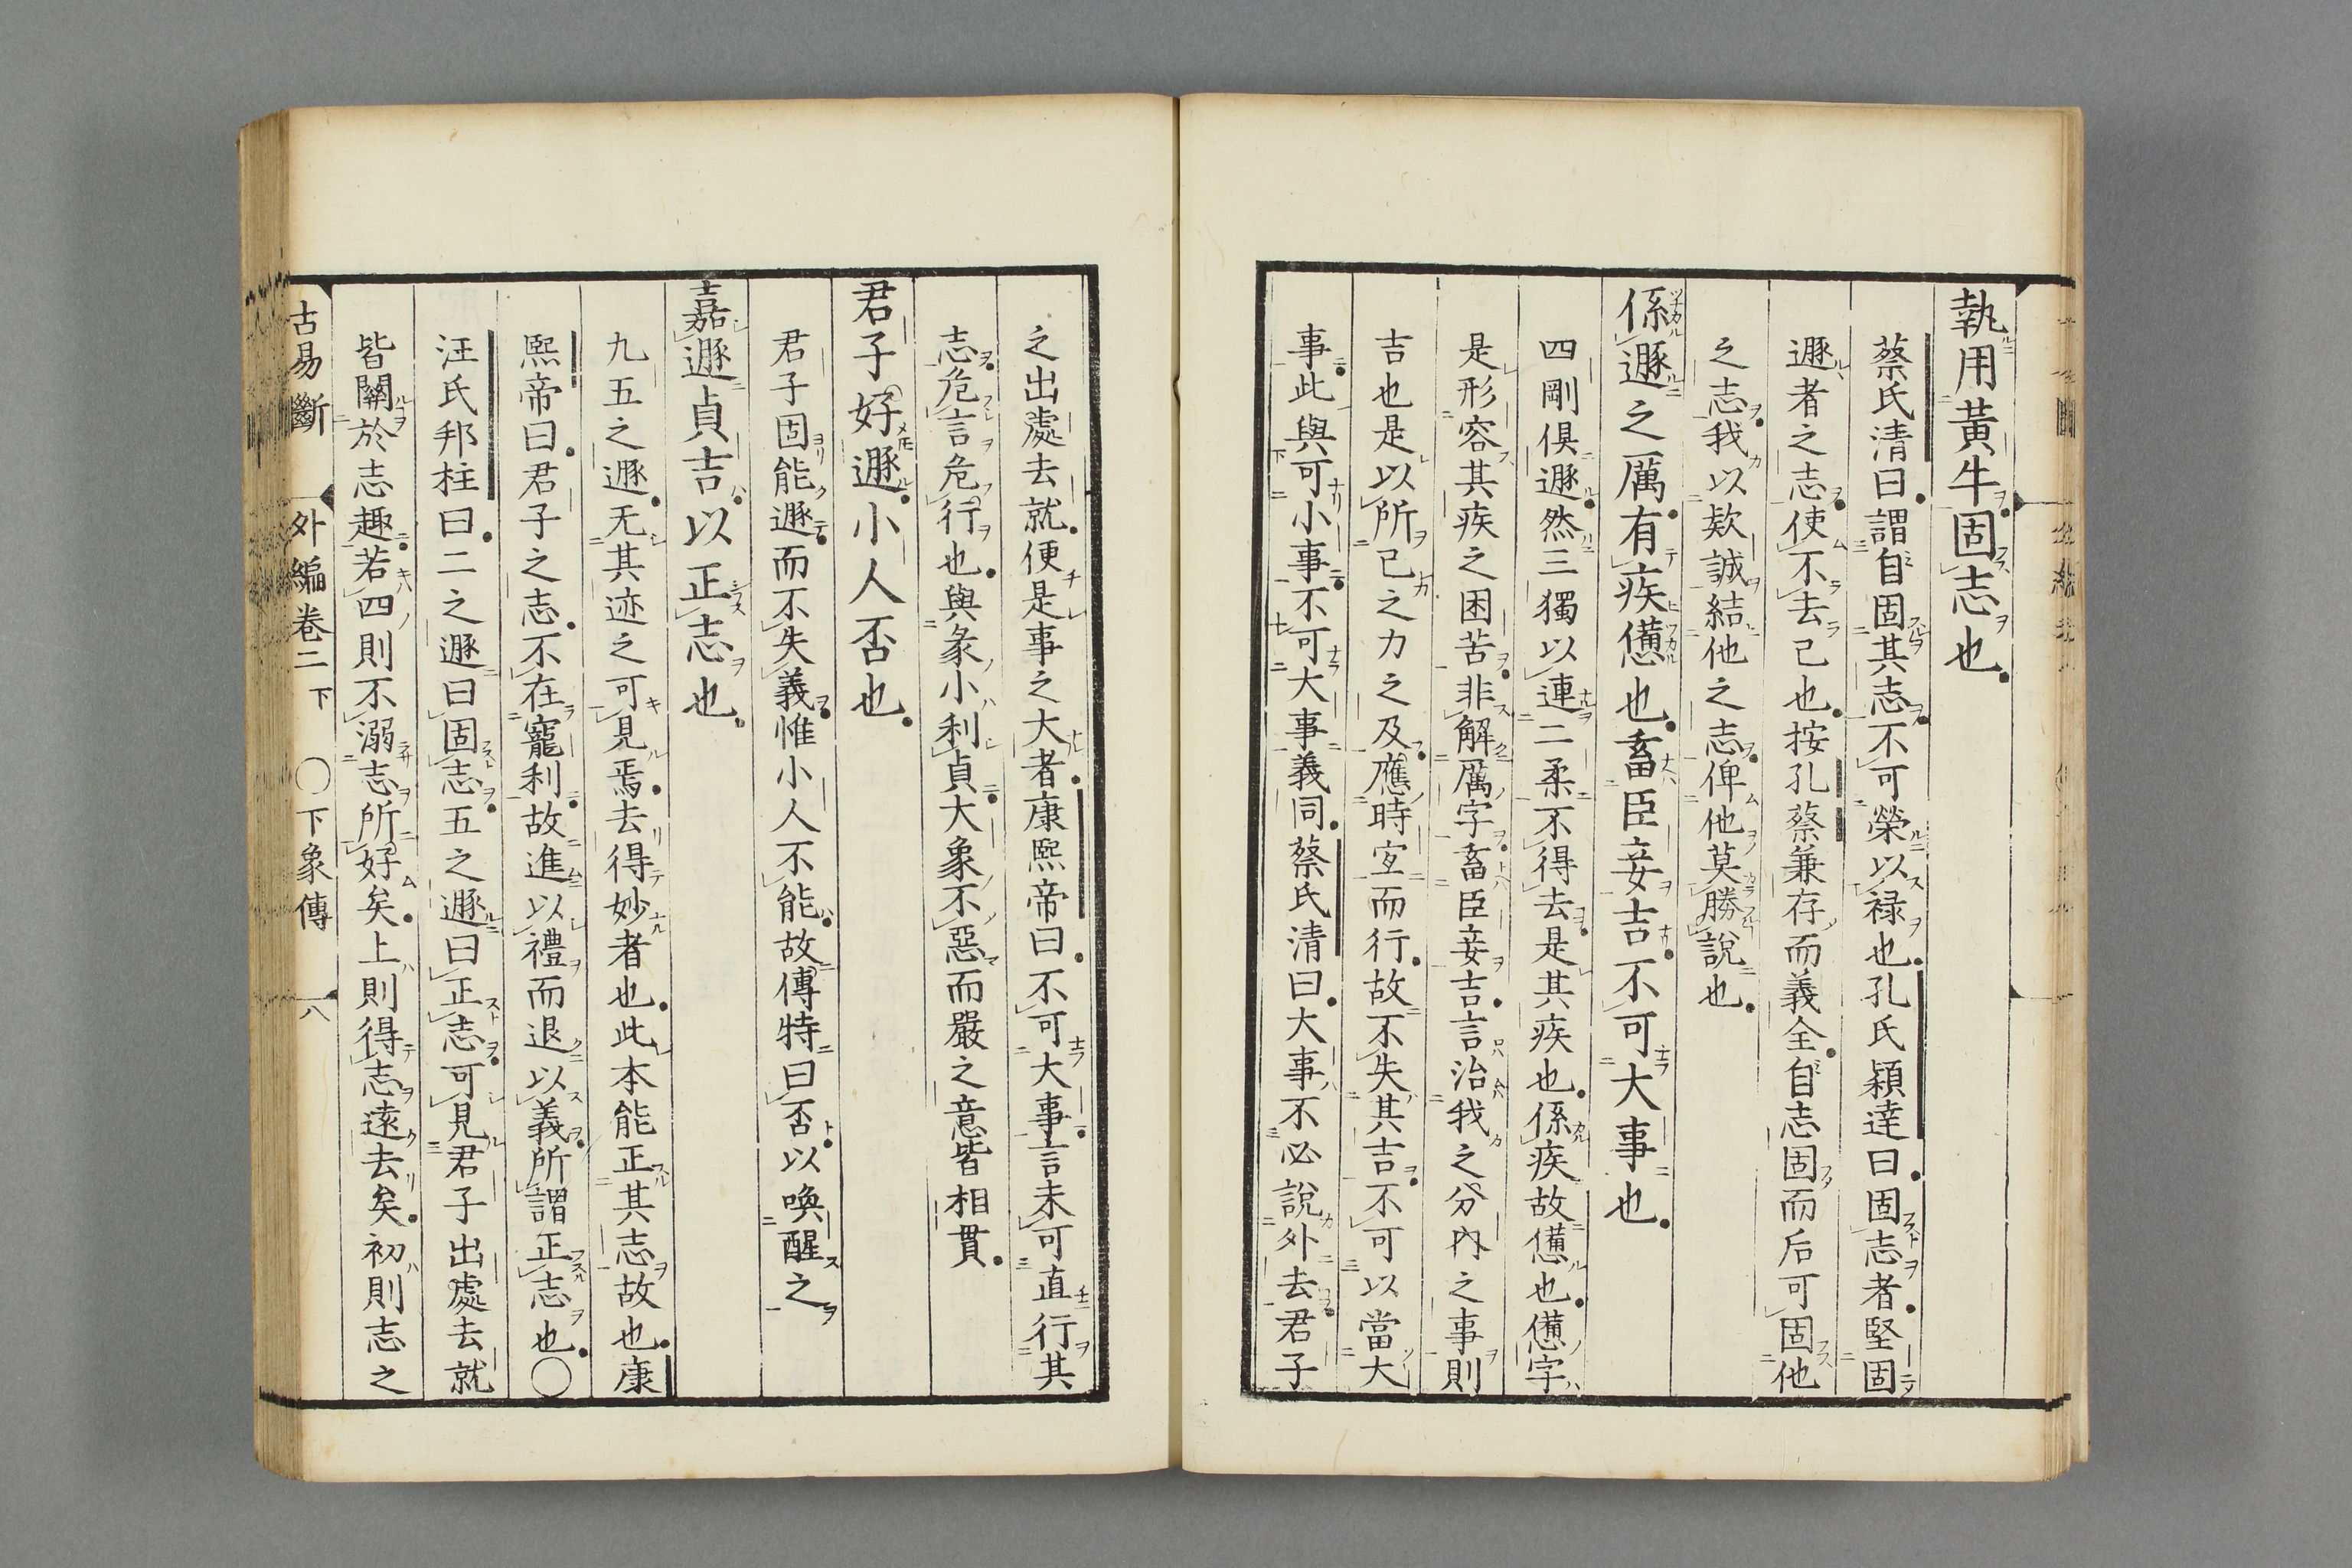 執用黃牛固志也
蔡氏清曰謂自固其志不可榮以祿也孔氏穎達曰固志者堅固
遯者之志使不去己也按孔蔡兼存而義全自志固而后可固他
之志我以欵誠結他之志俾他莫勝說也
係遯之厲有疾憊也畜臣妾吉不可大事也
四剛俱遯然三獨以連二柔不得去是其疾也係疾故憊也憊字
是形容其疾之困苦非解厲字畜臣妾吉言治我之分內之事則
吉也是以所己之力之及應時宜而行故不失其吉不可以當大
事此與可小事不可大事義同蔡氏清曰大事不必說外去君子
之出處去就便是事之大者康熙帝曰不可大事言未可直行其
志危言危行也與彖小利貞大象不惡而嚴之意皆相貫
君子好遯小人否也
君子固能遯而不失義惟小人不能故傳特曰否以喚醒之
嘉遯貞吉以正志也
九五之遯无其迹之可見焉去得妙者也此本能正其志故也康
熙帝曰君子之志不在寵利故進以禮而退以義所謂正志也〇
汪氏邦柱曰二之遯曰固志五之遯曰正志可見君子出處去就
皆關於志趣若四則不溺志所好矣上則得志遠去矣初則志之
古易斷 外編卷二 下 〇下象傳 八